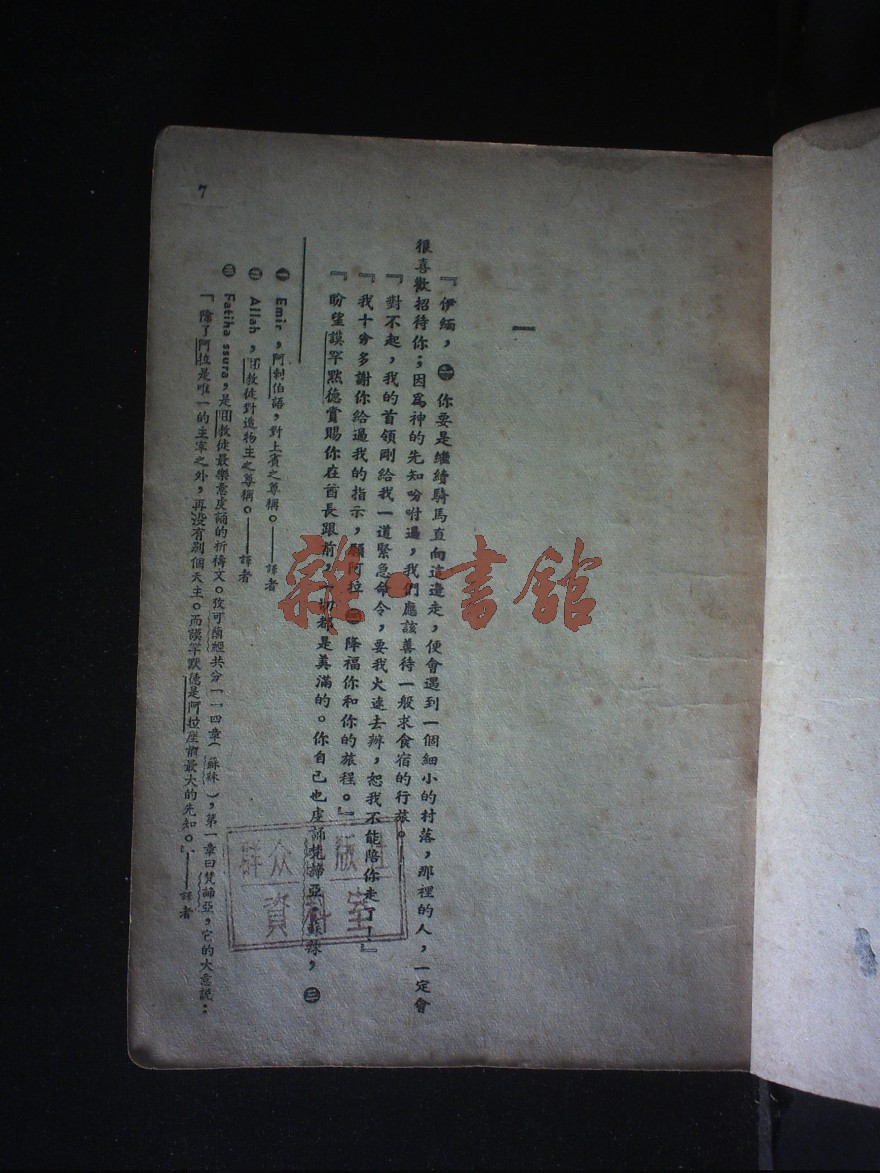 一
『伊緬，㊀你要是繼續騎馬直向這邊走，便會遇到一個細小的村落，那裡的人，一定會
很喜歡招待你；因爲神的先知吩咐過，我們應該善待一般求食宿的行旅。
『對不起，我的首領剛給我一道緊急命令，要我火速去辦，恕我不能陪你走了！』
『我十分多謝你給過我的指示，願阿拉㊁降福你和你的旅程。』
『盼望謨罕默德賞賜你在酋長跟前，一切都是美滿的。你自己也虔誦梵諦亞蘇秣，㊂
㊀ Emir，阿剌伯語，對上賓之尊稱。——譯者
㊁ Allah，回教徒對造物主之尊稱。——譯者
㊂ Fatiha ssura，是回教徒最樂意虔誦的祈禱文。攷可蘭經共分一一四章（蘇秣），第一章曰梵諦亞，它的大意説：
「除了阿拉是唯一的主宰之外，再没有别個天主。而謨罕默德是阿拉座前最大的先知。」——譯者
7
群众 版社
資料室
雜·書館